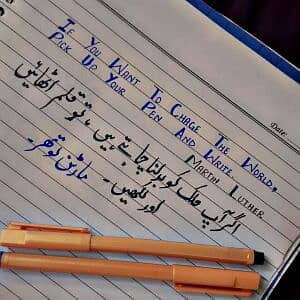 If You Want To Chage The World,
Pick Up Your Pen And Write
Martin Luther
Date:
اگر آپ ملک کو بدلنا چاہتے ہیں، تو قلم اٹھائیں
اور لکھیں۔ مارٹن لوتھر۔